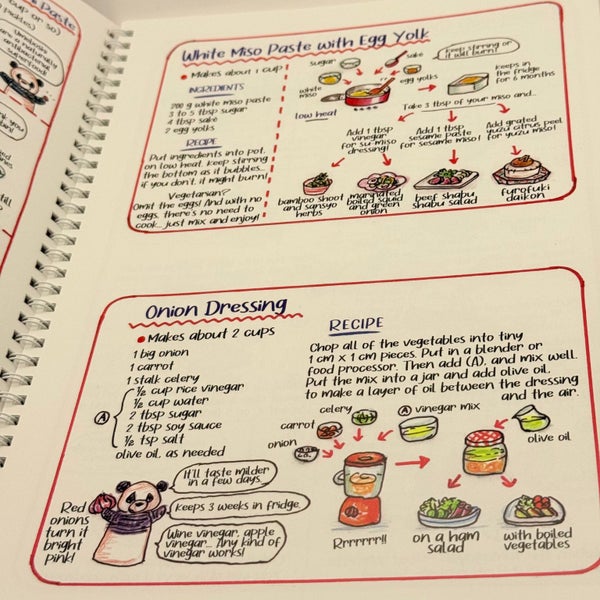 Paste
cup or so)
pickles)
superfood!
White Miso Paste with Egg Yolk
Makes about 1 cup
INGREDIENTS
200 g white miso paste
3 to 5 tbsp sugar
4 tbsp sake
2 egg yolks
RECIPE
Put ingredients into pot,
on low heat. Keep stirring
the bottom as it bubbles...
if you don't, it might burn!
Vegetarian?
Omit the eggs! And with no
eggs, there's no need to
cook... just mix and enjoy!
sugar
sake
Keep stirring or
it will burn!
white
miso
egg yolks
Keeps in
the fridge
for 6 months
low heat
Take 3 tbsp of your miso and...
Add 1 tbsp
vinegar
for su-miso
dressing!
Add 1 tbsp
sesame paste for
sesame miso!
Add grated
yuzu citrus peel
for yuzu miso!
bamboo shoot
and sansyo
herbs
marinated
boiled squid
and green
onion
beef shabu
shabu salad
furofuki
daikon
Onion Dressing
Makes about 2 cups
1 big onion
1 carrot
1 stalk celery
Ⓐ
½ cup rice vinegar
½ cup water
2 tbsp sugar
2 tbsp soy sauce
½ tsp salt
olive oil, as needed
RECIPE
Chop all of the vegetables into tiny
1 cm x 1 cm pieces. Put in a blender or
food processor. Then add (A), and mix well.
Put the mix into a jar and add olive oil,
to make a layer of oil between the dressing
and the air.
celery
Ⓐ vinegar mix
carrot
onion
olive oil
Rrrrrrr!!
on a ham
salad
with boiled
vegetables
It'll taste milder
in a few days.
Keeps 3 weeks in fridge.
Wine vinegar, apple
vinegar... Any kind of
vinegar works!
Red
onions
turn it
bright
pink!